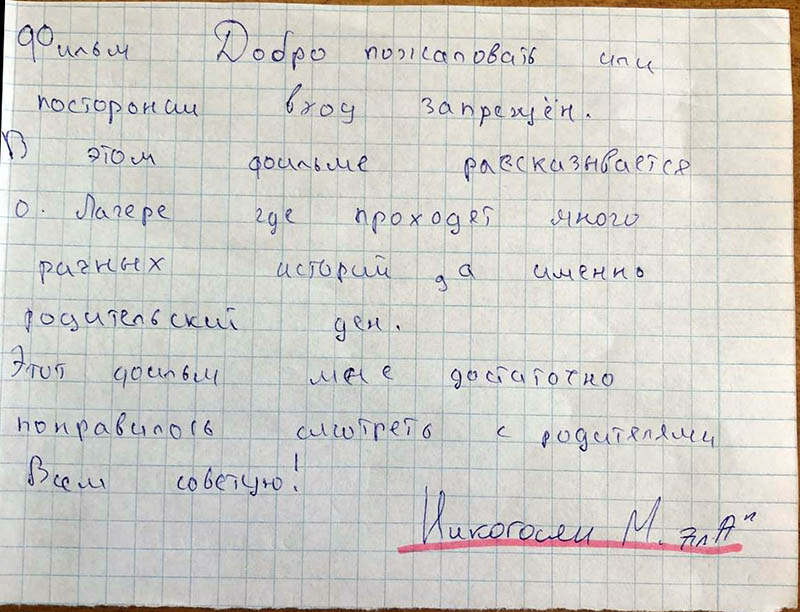 Фильм Добро пожаловать или
посторонии вход запрещён.
В этом фильме рассказывается
о. Лагере где проходет много
разных историй да именно
родительский ден.
Этот фильм мне достаточно
понравилось смотреть с родителями
Всем советую!
Никогосян М. 7„А"